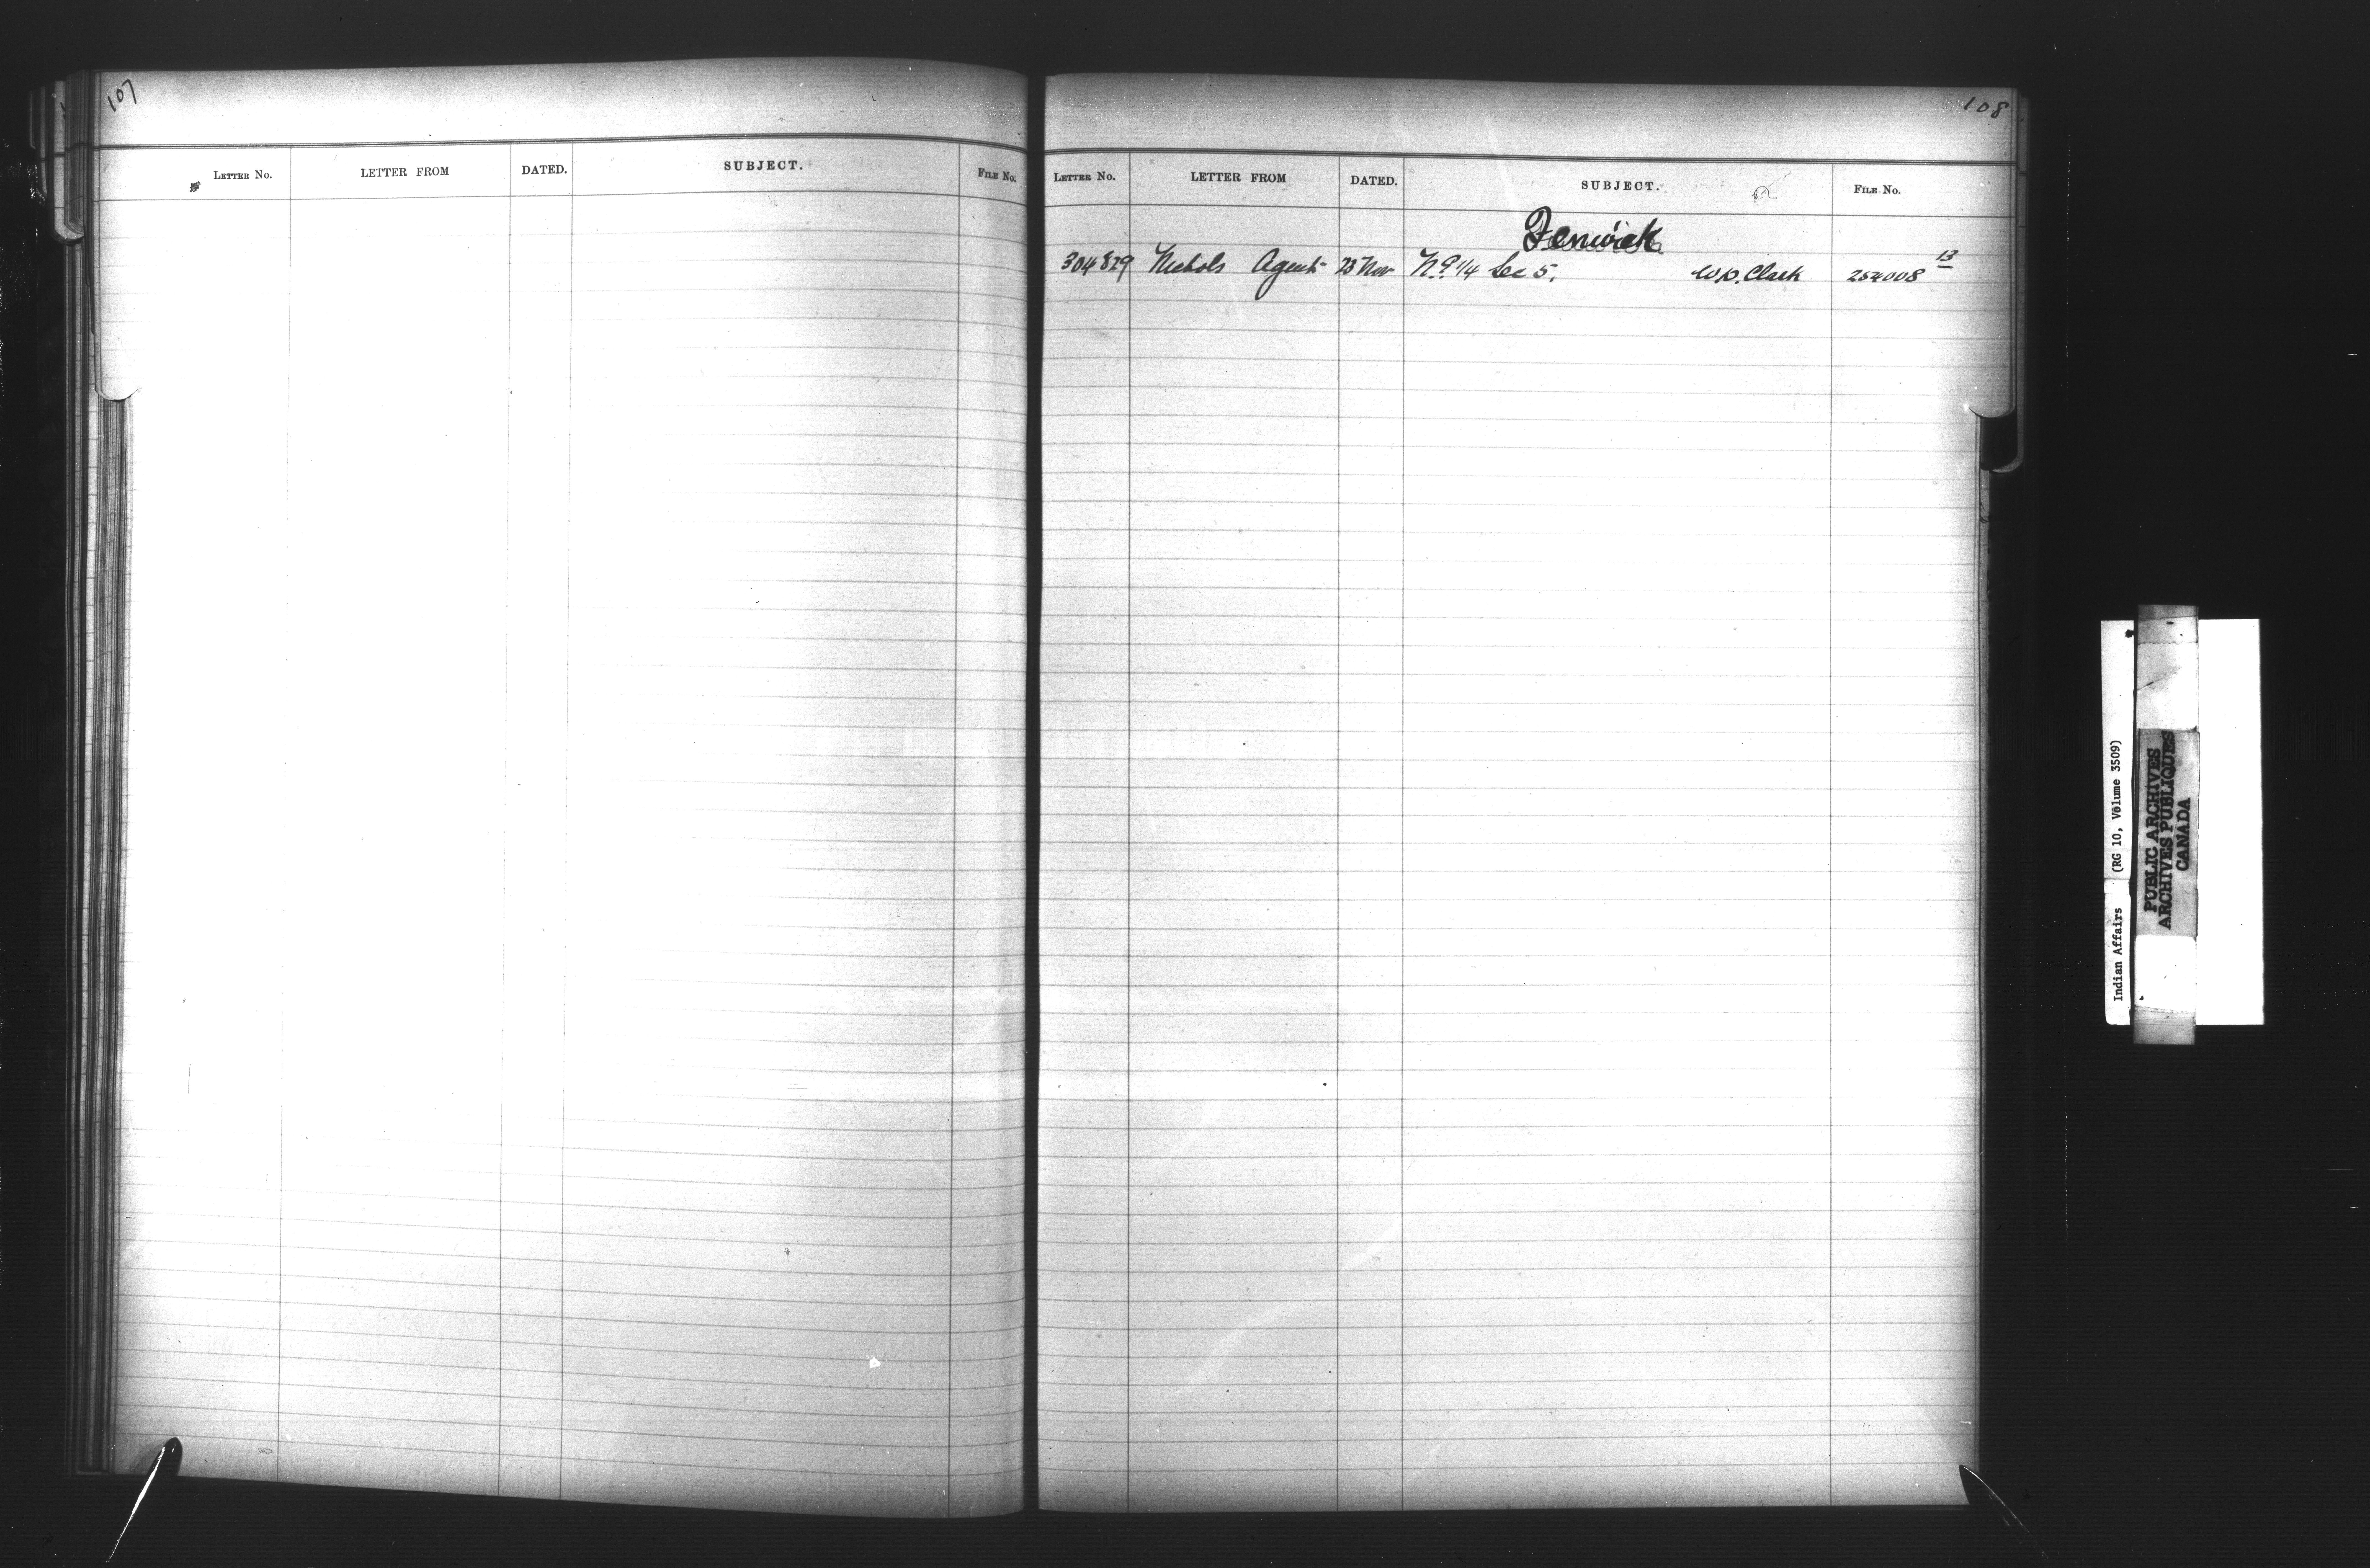 107
LETTER No. LETTER FROM DATED. SUBJECT. FILE No.
108
LETTER No. LETTER FROM DATED. SUBJECT. FILE No.
Fenwick
304829 Nichols Agent 23 Nov Sec 5, Clark 254008 13
Indian Affairs (RG 10, Volume 3509)
PUBLIC ARCHIVES
ARCHIVES PUBLIQUES
CANADA